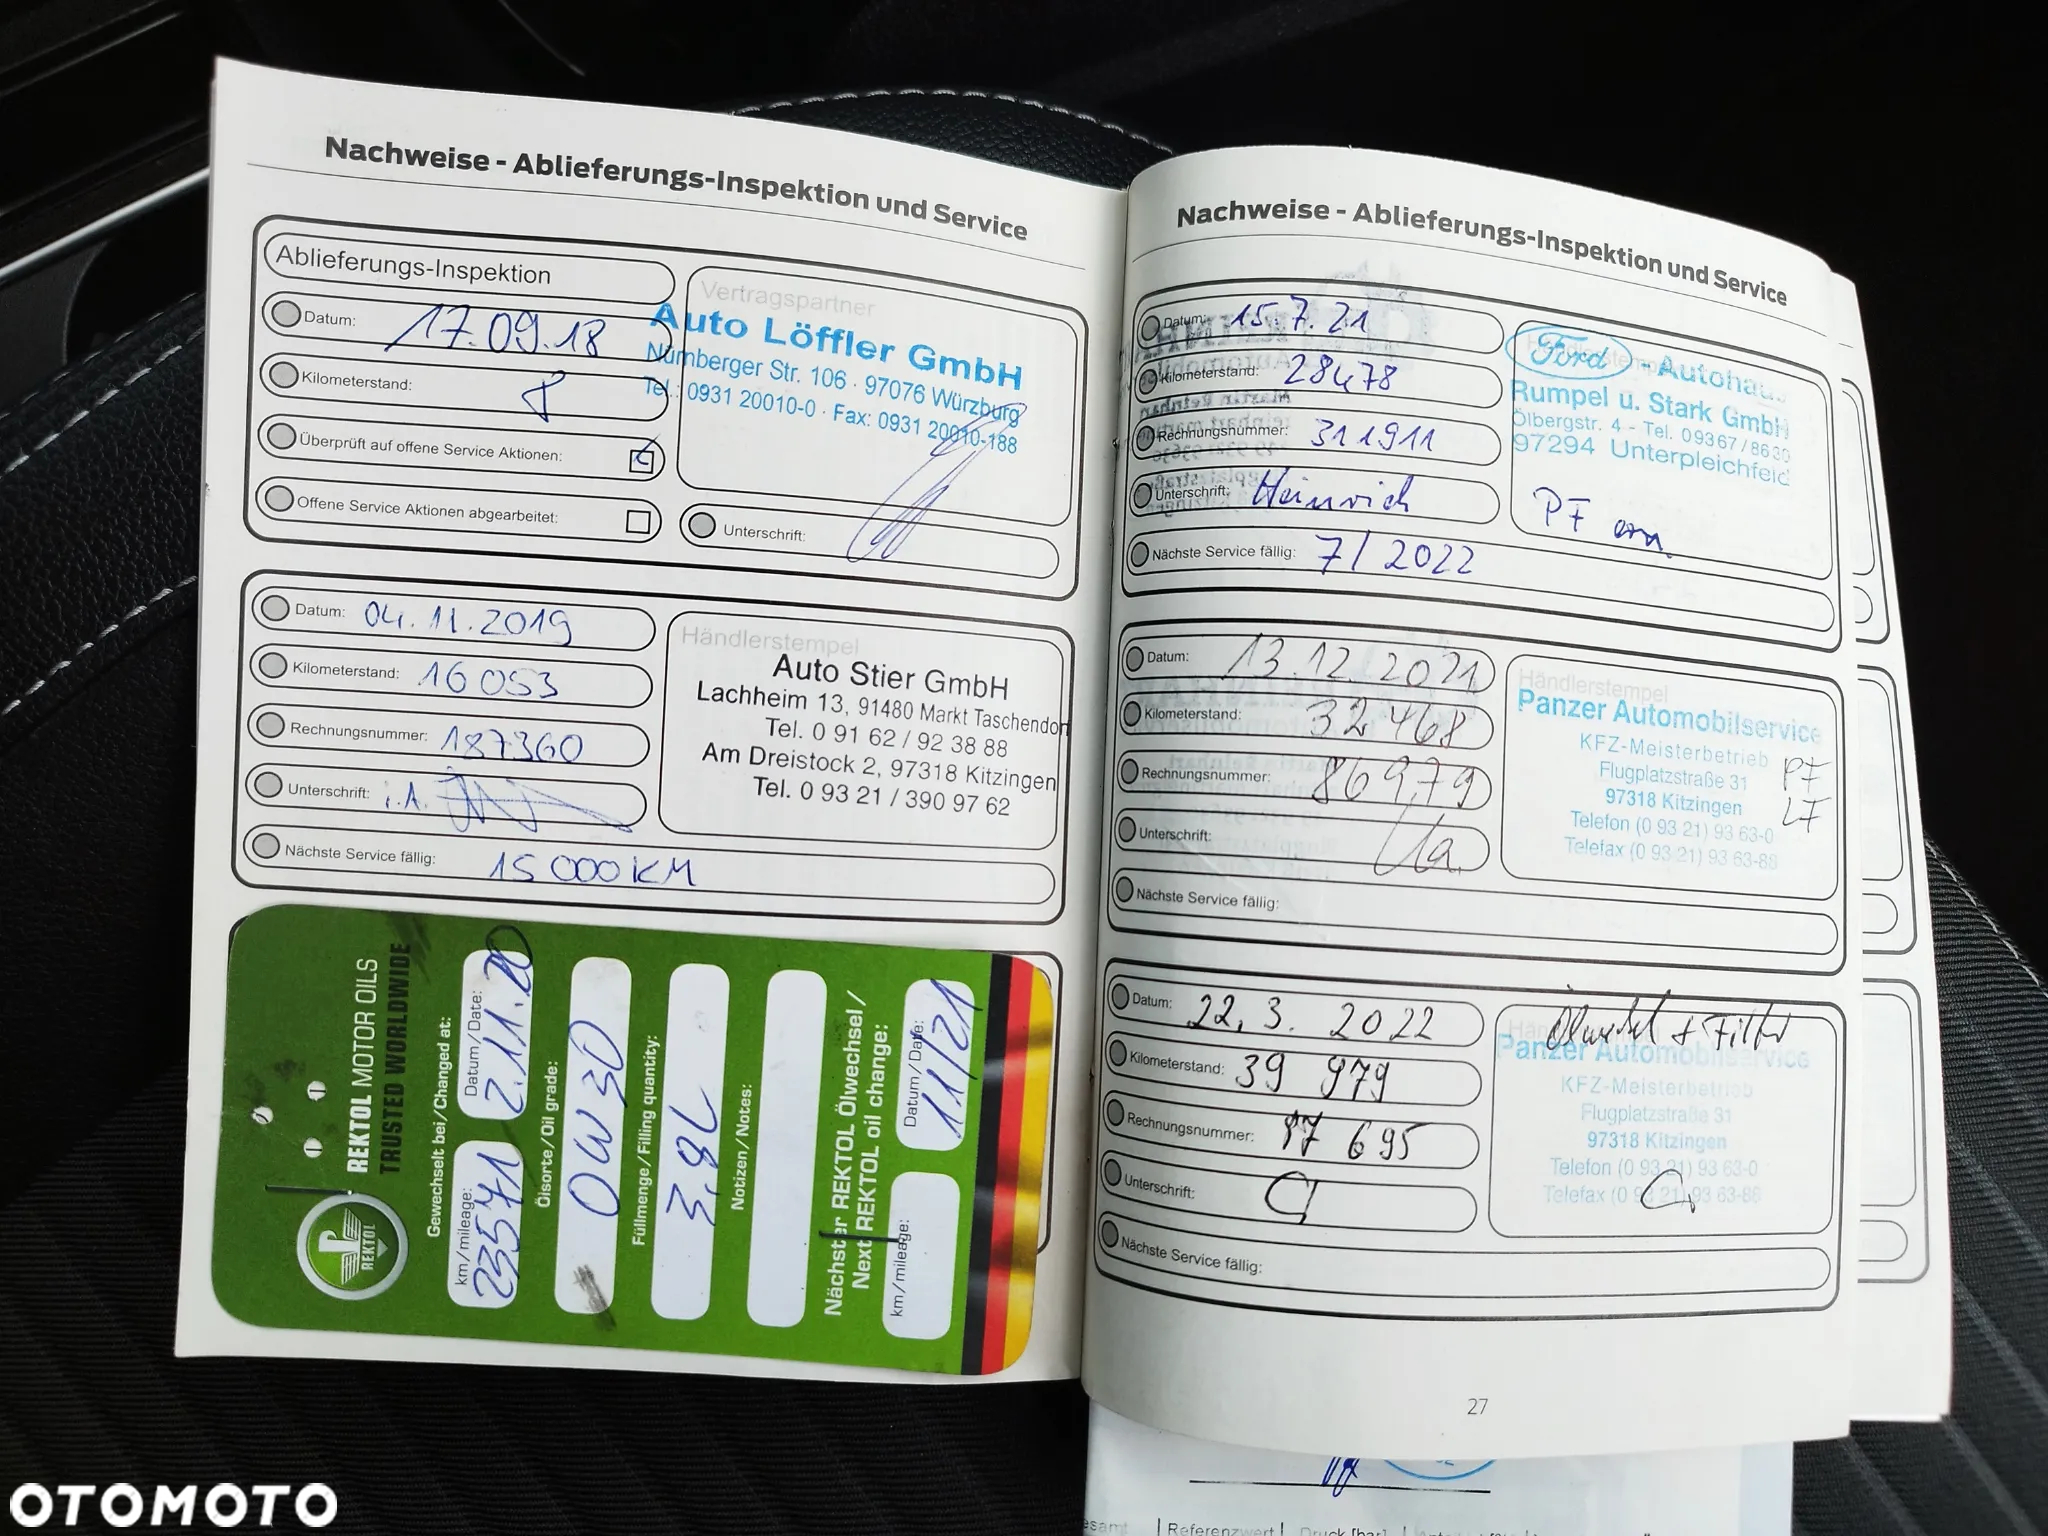 Nachweise - Ablieferungs-Inspektion und Service
Ablieferungs-Inspektion
Datum: 17.09.18
Kilometerstand: 8
Überprüft auf offene Service Aktionen:
Offene Service Aktionen abgearbeitet:
Vertragspartner
Auto Löffler GmbH
Nürnberger Str. 106 · 97076 Würzburg
Tel.: 0931 20010-0 · Fax: 0931 20010-188
Unterschrift:
Datum: 04.11.2019
Kilometerstand: 16 053
Rechnungsnummer: 187360
Unterschrift: i.A.
Nächste Service fällig: 15 000 KM
Händlerstempel
Auto Stier GmbH
Lachheim 13, 91480 Markt Taschendorf
Tel. 0 91 62 / 92 38 88
Am Dreistock 2, 97318 Kitzingen
Tel. 0 93 21 / 390 97 62
REKTOL
REKTOL MOTOR OILS
TRUSTED WORLDWIDE
Gewechselt bei/Changed at:
km/mileage: 23571
Datum/Date: 2.11.20
Ölsorte/Oil grade:
0W30
Füllmenge/Filling quantity:
3,8L
Notizen/Notes:
Nächster REKTOL Ölwechsel/
Next REKTOL oil change:
km/mileage:
Datum/Date: 11/21
Nachweise - Ablieferungs-Inspektion und Service
Datum: 15.7.21
Kilometerstand: 28478
Rechnungsnummer: 311911
Unterschrift: Heinrich
Nächste Service fällig: 7/2022
Ford - Autohaus
Rumpel u. Stark GmbH
Ölbergstr. 4 - Tel. 09367/8630
97294 Unterpleichfeld
PF
Datum: 13.12.2021
Kilometerstand: 32 468
Rechnungsnummer: 86979
Unterschrift:
Nächste Service fällig:
Händlerstempel
Panzer Automobilservice
KFZ-Meisterbetrieb
Flugplatzstraße 31
97318 Kitzingen
Telefon (0 93 21) 93 63-0
Telefax (0 93 21) 93 63-88
PF
LF
Datum: 22.3. 2022
Kilometerstand: 39 979
Rechnungsnummer: 87 695
Unterschrift:
Nächste Service fällig:
Ölwechsel + Filter
Panzer Automobilservice
KFZ-Meisterbetrieb
Flugplatzstraße 31
97318 Kitzingen
Telefon (0 93 21) 93 63-0
Telefax (0 93 21) 93 63-88
27
Referenzwert
OTOMOTO